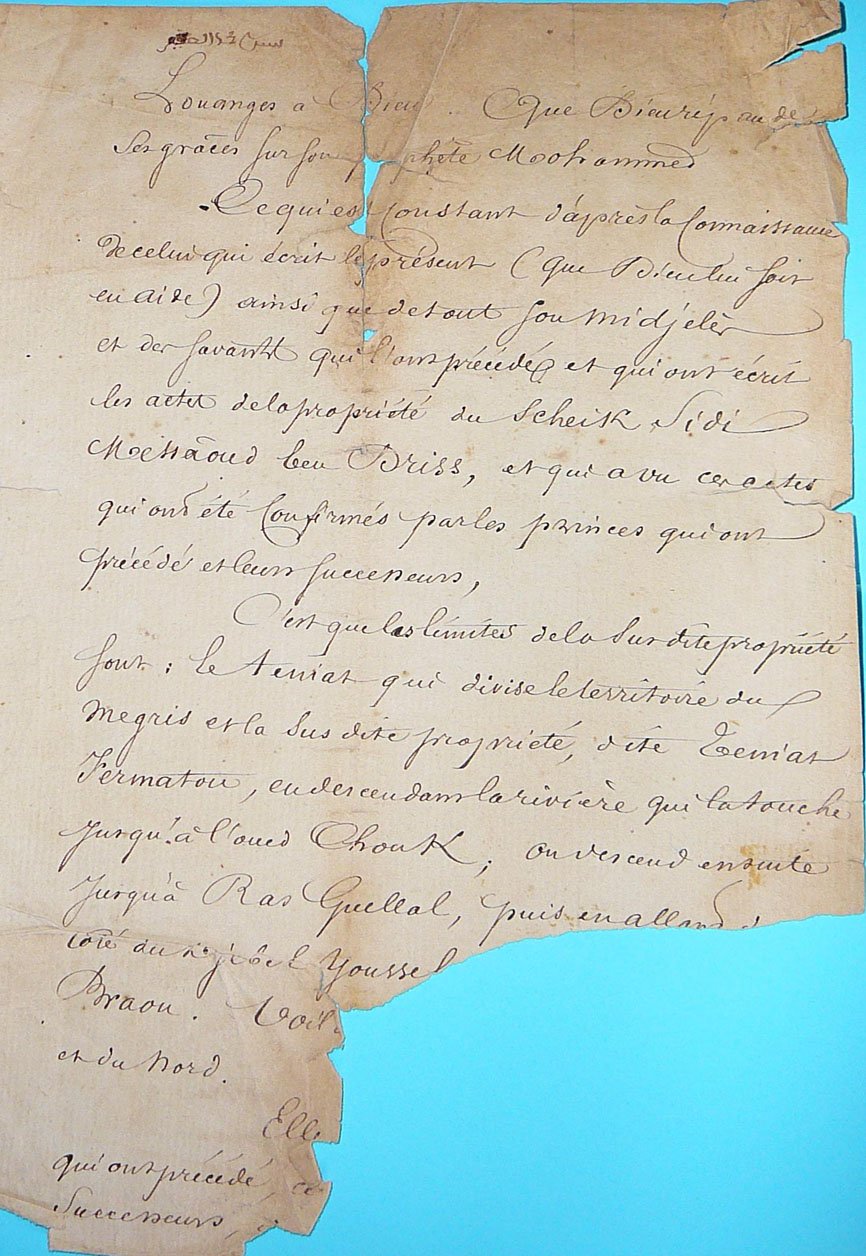 Louanges à Dieu. Que Dieu répande
Ses grâces sur son prophète Mohammed
Ce qui est Constant d'après la Connaissance
de celui qui écrit le présent (que Dieu lui soit
en aide) ainsi que de tout son midjelès
et des savants qui l'ont précédé, et qui ont écrit
les actes de la propriété du Scheik Sidi
Messâoud ben Driss, et qui a vu ces actes
qui ont été Confirmés par les princes qui ont
précédé et leurs successeurs,
C'est que les limites de la Sus dite propriété
sont : le teniat qui divise le territoire du
Megris et la Sus dite propriété, dite Teniat
Fermatou, en descendant la rivière qui la touche
jusqu'à l'oued Chouk ; on descend ensuite
jusqu'à Ras Guellal, puis en allant
côté du djebel Youssef
Braou. Voil
et du Nord.
Elle
qui ont précédé,
Successeurs,